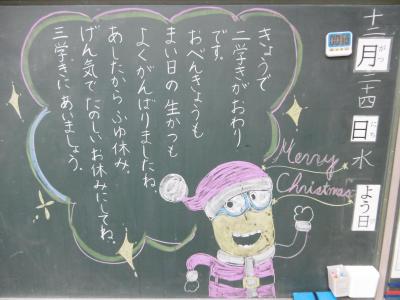 十二月二十四日水よう日
がつ
にち
きょうで
二学きがおわり
です。
おべんきょうも
まい日の生かつも
よくがんばりましたね。
あしたから ふゆ休み。
げん気で たのしい お休みにしてね。
三学きに あいましょう。
Merry
Christmas